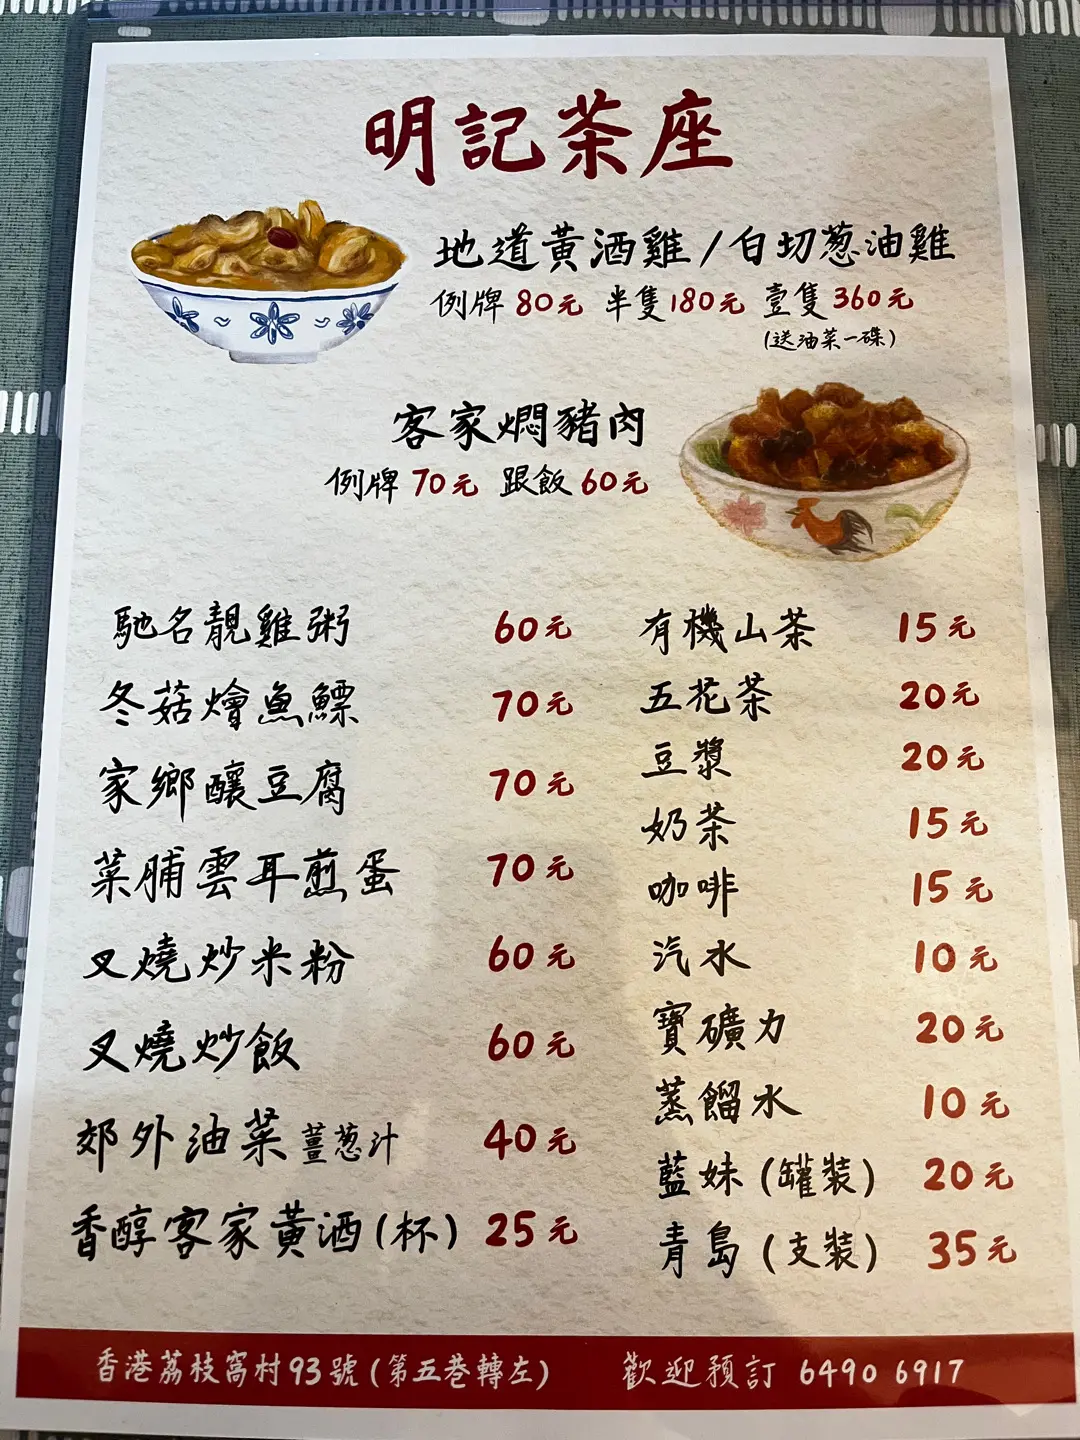 明記茶座
地道黃酒雞/白切葱油雞
例牌 80元 半隻180元 壹隻360元
(送油菜一碟)
客家燜豬肉
例牌 70元 跟飯 60元
馳名靚雞粥 60元
冬菇燴魚鰾 70元
家鄉釀豆腐 70元
菜脯雲耳煎蛋 70元
叉燒炒米粉 60元
叉燒炒飯 60元
郊外油菜 薑葱汁 40元
香醇客家黃酒(杯) 25元
有機山茶 15元
五花茶 20元
豆漿 20元
奶茶 15元
咖啡 15元
汽水 10元
寶礦力 20元
蒸餾水 10元
藍妹(罐裝) 20元
青島(支裝) 35元
香港荔枝窩村93號(第五巷轉左) 歡迎預訂 6490 6917